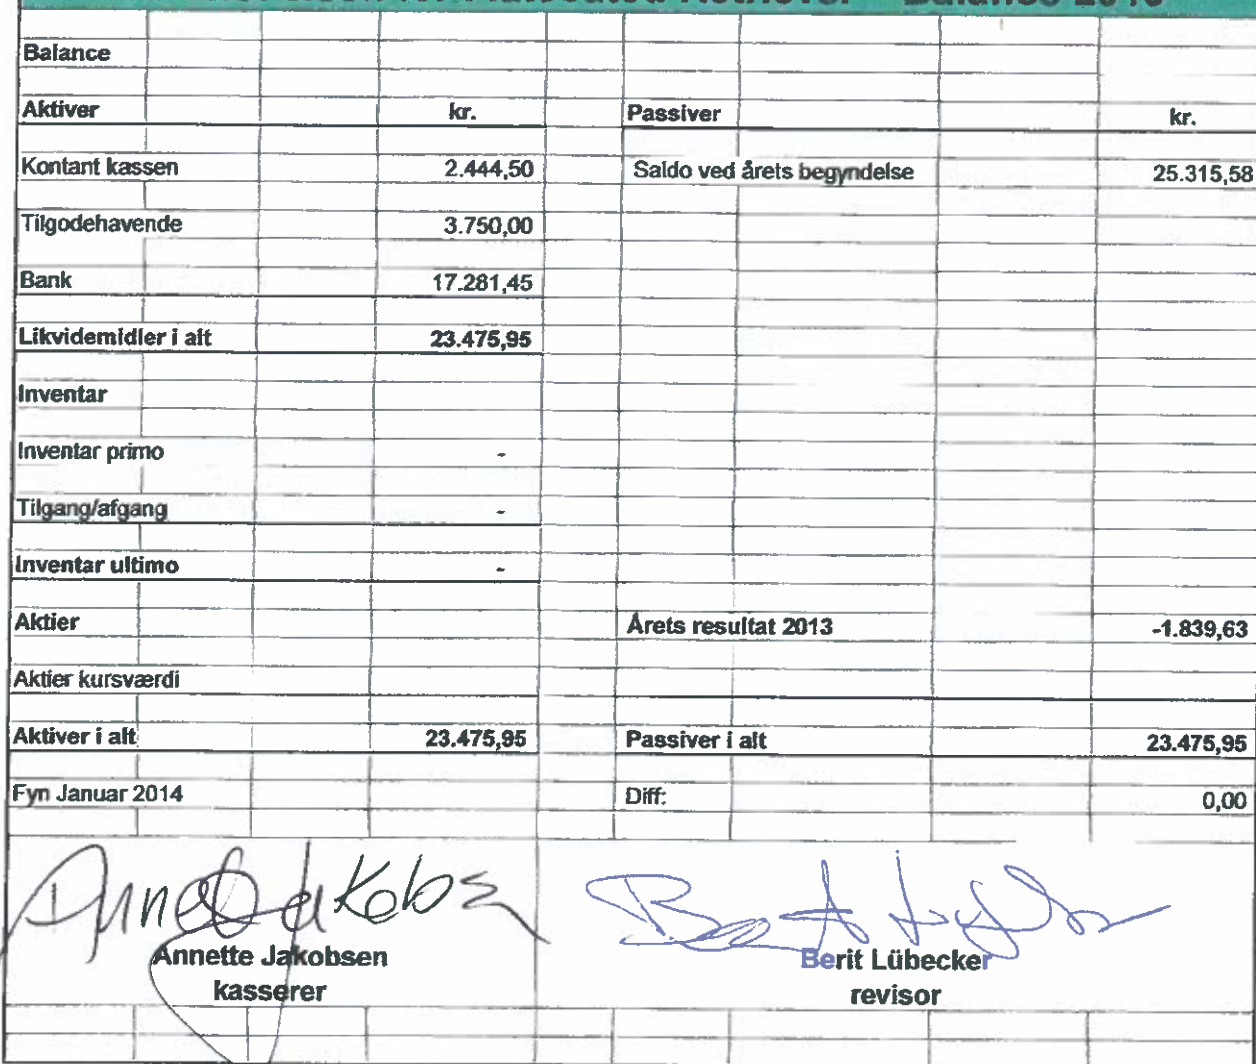 Balance
Aktiver kr. Passiver kr.
Kontant kassen 2.444,50 Saldo ved årets begyndelse 25.315,58
Tilgodehavende 3.750,00
Bank 17.281,45
Likvidemidler i alt 23.475,95
Inventar
Inventar primo -
Tilgang/afgang -
Inventar ultimo -
Aktier Årets resultat 2013 -1.839,63
Aktier kursværdi
Aktiver i alt 23.475,95 Passiver i alt 23.475,95
Fyn Januar 2014 Diff: 0,00
Annette Jakobsen Berit Lübecker
kasserer revisor